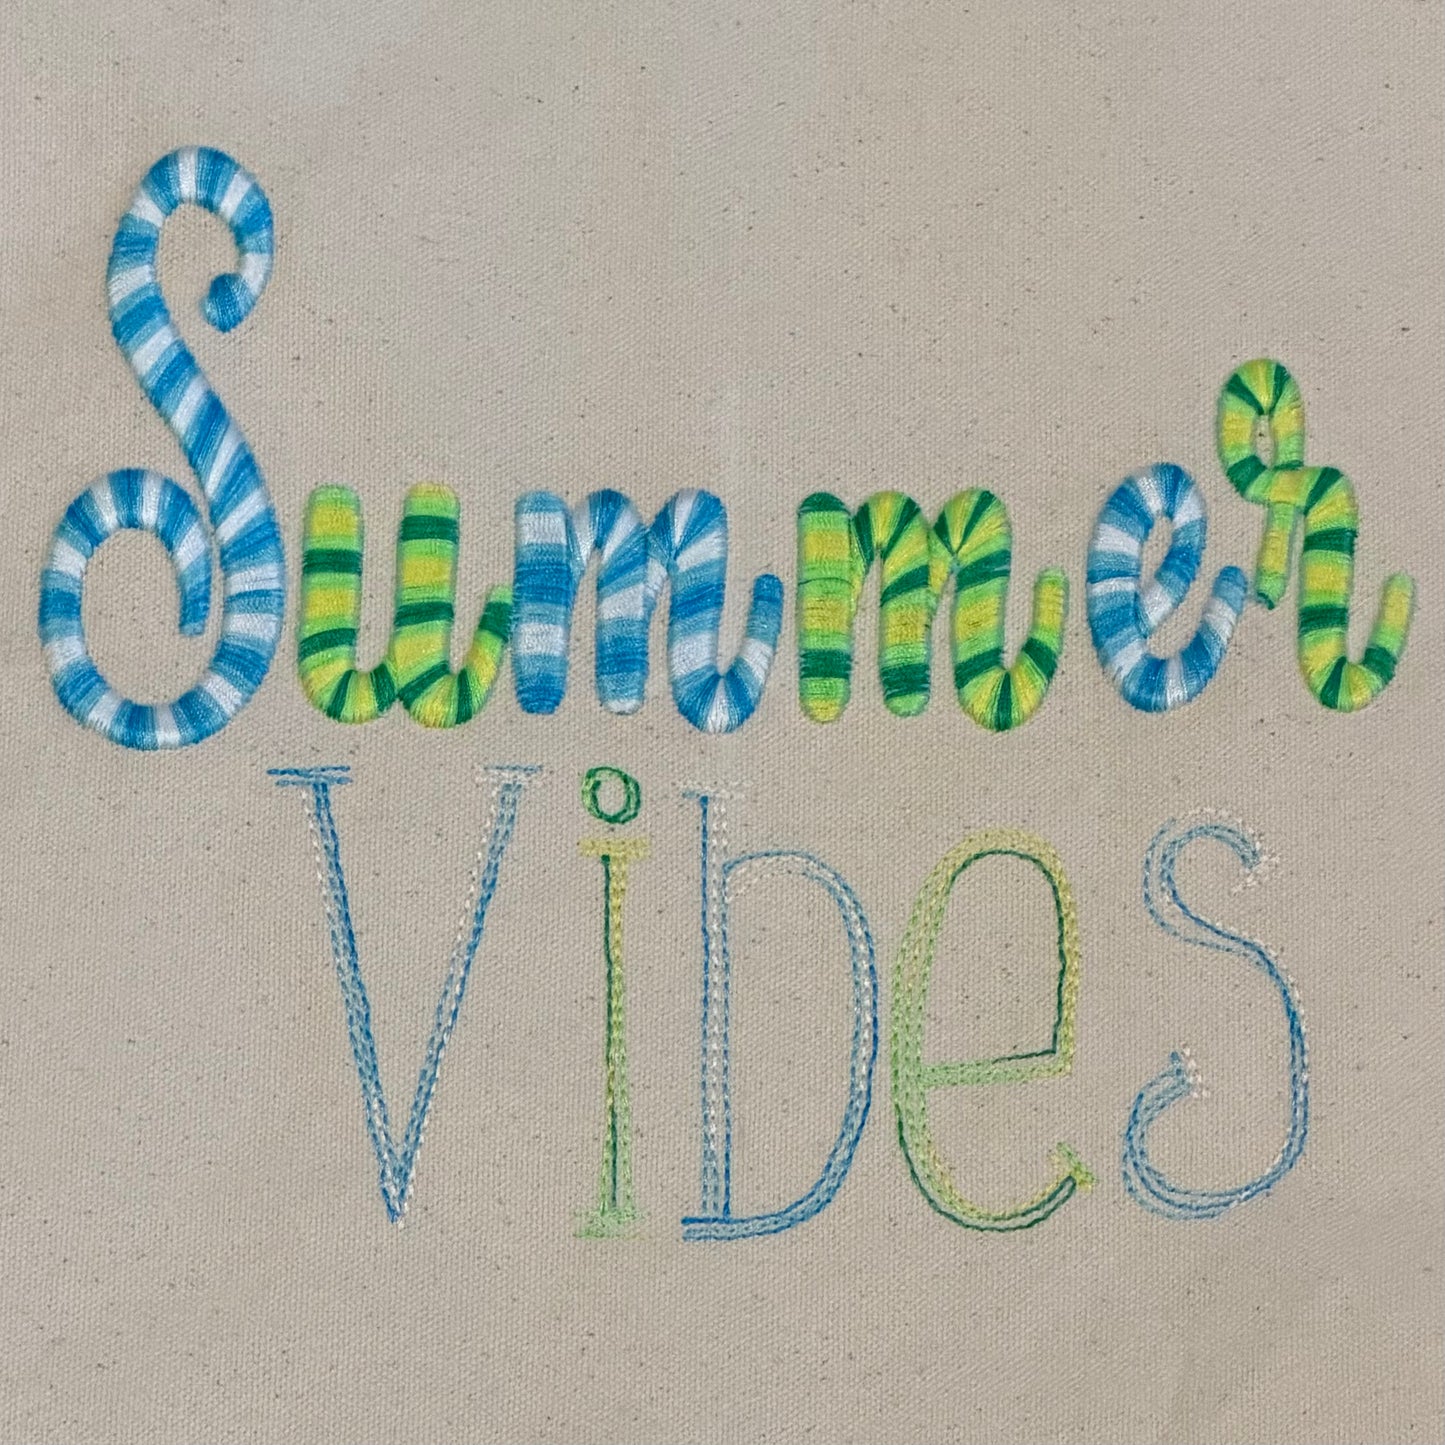 Summer
Vibes